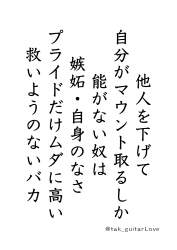 他人を下げて
自分がマウント取るしか
能がない奴は
嫉妬・自身のなさ
プライドだけムダに高い
救いようのないバカ
@tak_guitarLove